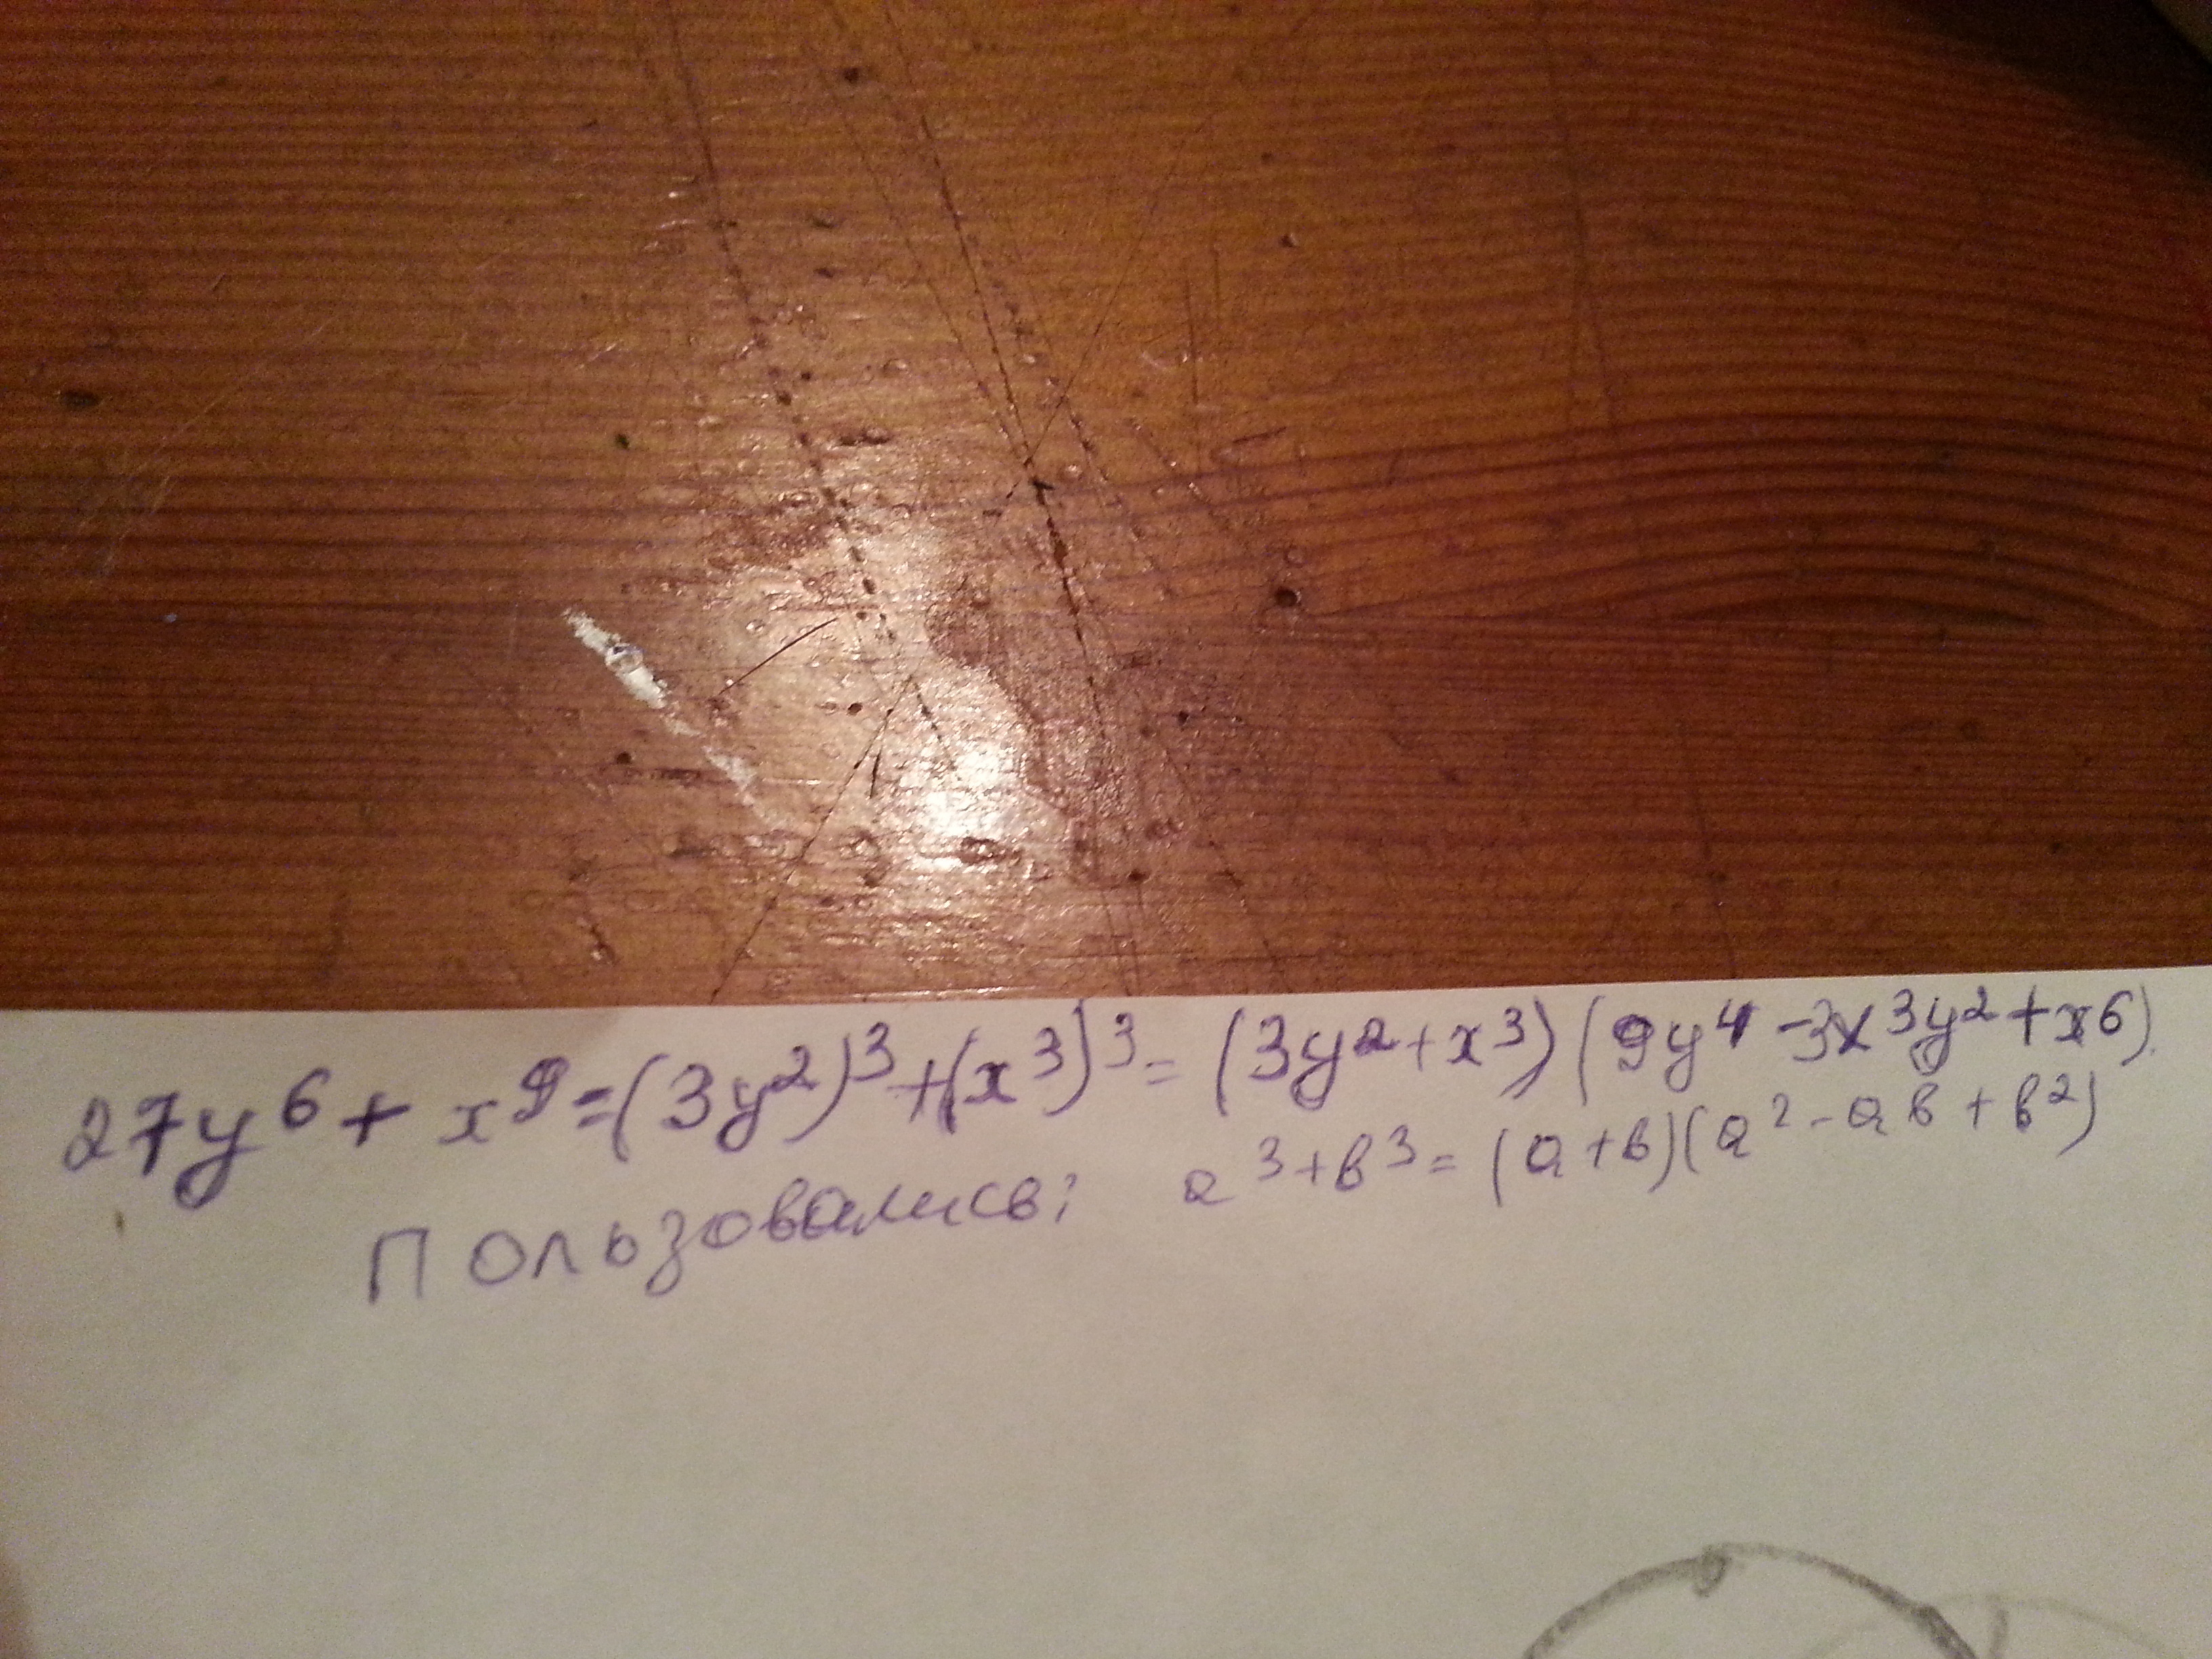 27y⁶ + x⁹ = (3y²)³ + (x³)³ = (3y² + x³) (9y⁴ - 3x³y² + x⁶).
Пользовались: a³ + b³ = (a + b)(a² - ab + b²)